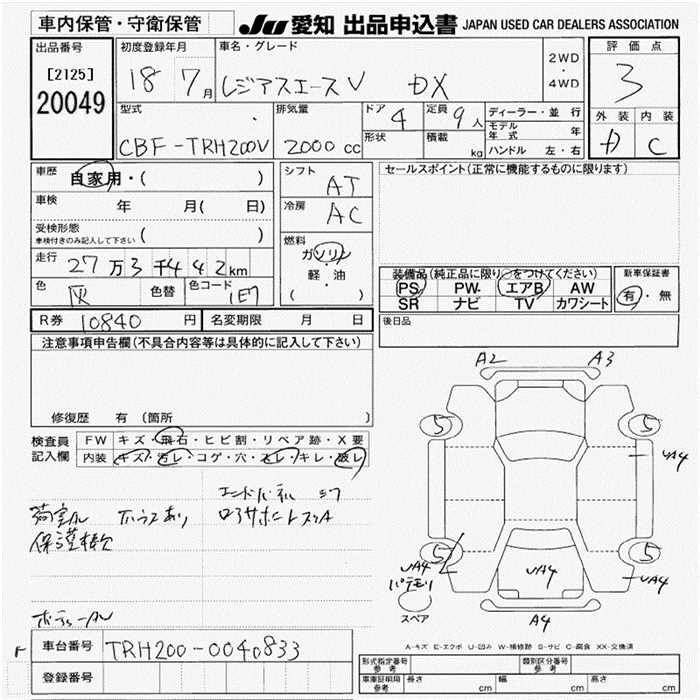 車内保管・守衛保管
JU 愛知 出品申込書 JAPAN USED CAR DEALERS ASSOCIATION
出品番号
[2125]
20049
初度登録年月
18 7月
車名・グレード
レジアスエースV DX
2WD
・
4WD
評価点
3
型式
CBF-TRH200V
排気量
2000cc
ドア
4
定員
9人
形状
積載
kg
ディーラー・並行
モデル年式 年
ハンドル 左・右
外装 内装
D C
車歴 自家用・( )
車検 年 月( 日)
受検形態
車検付きのみ記入して下さい ( )
走行 27万3千442km
色 灰 色替 色コード 1E7
シフト AT
冷房 AC
燃料
ガソリン
・
軽・油
( )
セールスポイント(正常に機能するものに限ります)
装備品(純正品に限り○をつけてください)
PS PW エアB AW
SR ナビ TV カワシート
新車保証書
有・無
R券 10840円 名変期限 月 日
後日品
注意事項申告欄(不具合内容等は具体的に記入して下さい)
修復歴 有(箇所 )
検査員記入欄
FW キズ・飛石・ヒビ割・リペア跡・X要
内装 キズ・汚レ・コゲ・穴・スレ・キレ・破レ
荷室ル
保護棒欠
ボディール
A2 A3
5 5
UA4
5 5
UA4
UA4
UA4
A4
スペア
A-キズ E-エクボ U-凹み W-補修跡 S-サビ C-腐食 XX-交換済
F
車台番号 TRH200-0040833
登録番号
形式指定番号 参考
類別区分番号 参考
車庫証明用 参考 長さ cm 幅 cm 高さ cm